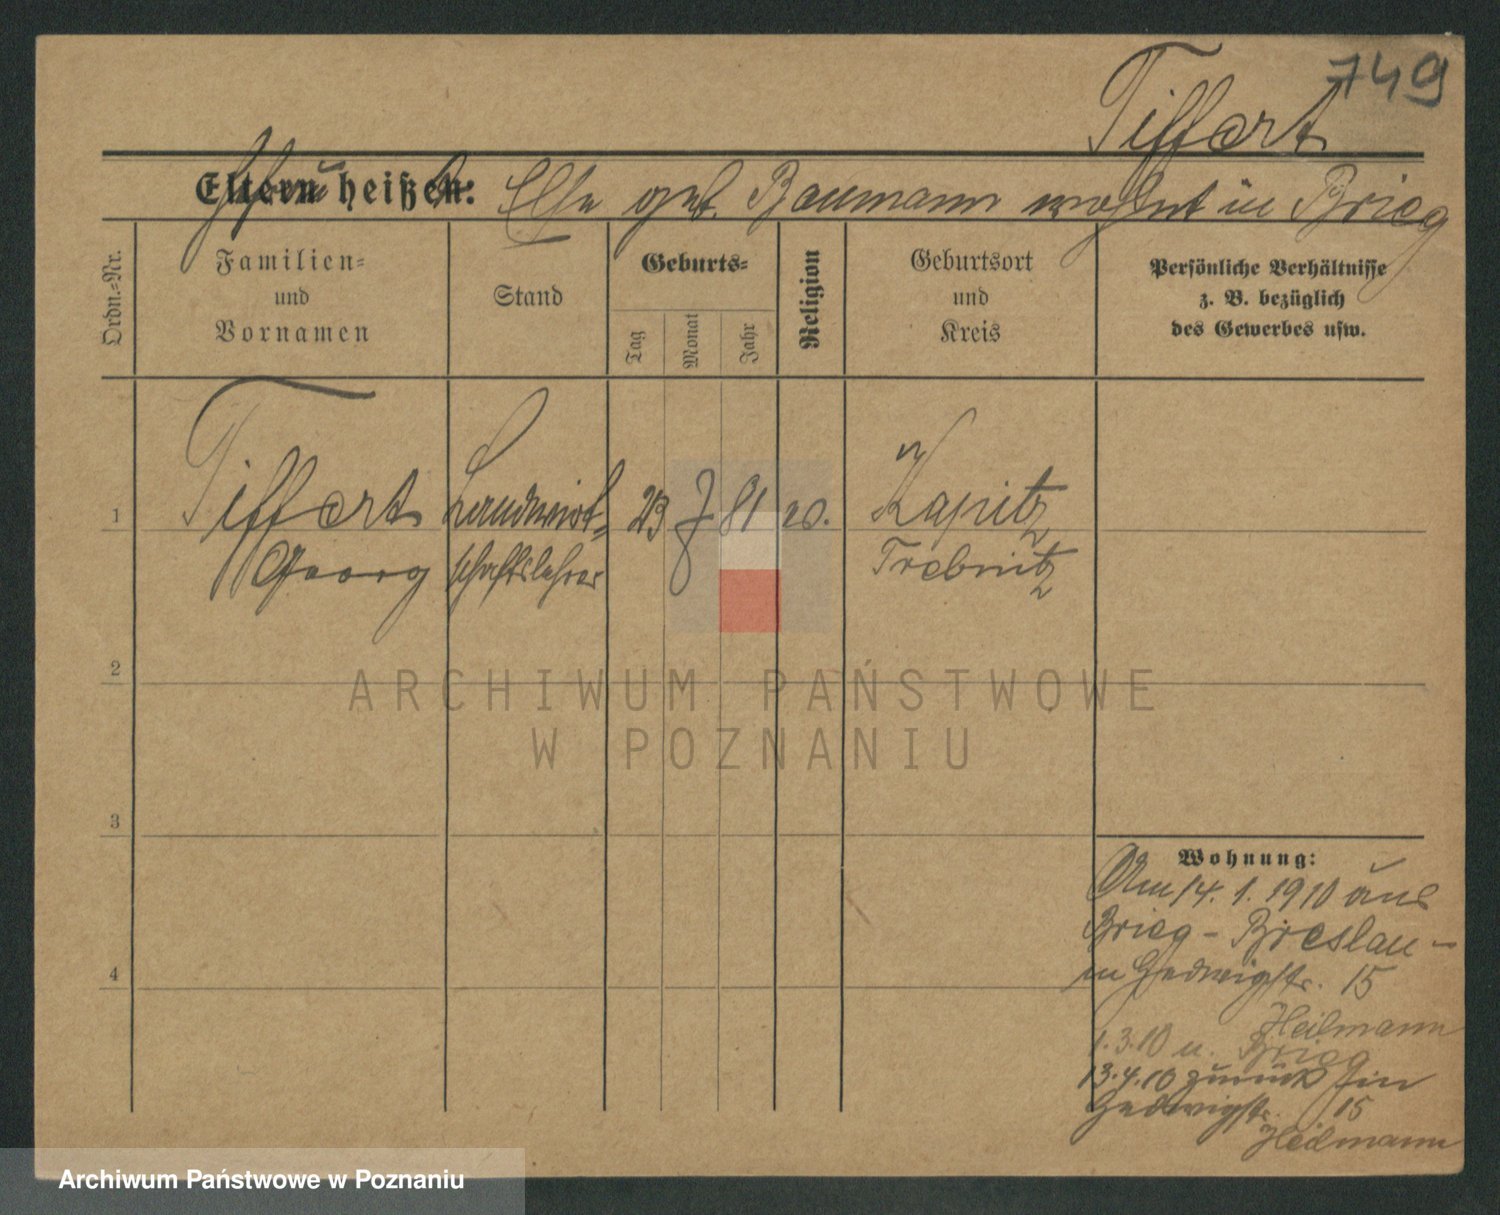 749
Tiffert
Eltern heißen: Ehefrau Else geb. Baumann wohnt in Brieg
Ordn.-Nr.
Familien-
und
Vornamen
Stand
Geburts-
Tag
Monat
Jahr
Religion
Geburtsort
und
Kreis
Persönliche Verhältnisse
z. B. bezüglich
des Gewerbes usw.
1
Tiffert
Georg
Landwirt-
schaftslehrer
23 7 81
Kapitz
Trebnitz
2
ARCHIWUM PAŃSTWOWE
W POZNANIU
3
4
Wohnung:
Am 14. 1. 1910 aus
Brieg - Breslau -
in Hedwigstr. 15
Heilmann
1.3.10 n. Brieg
13.4.10 zurück hier
Hedwigstr. 15
Heilmann
Archiwum Państwowe w Poznaniu